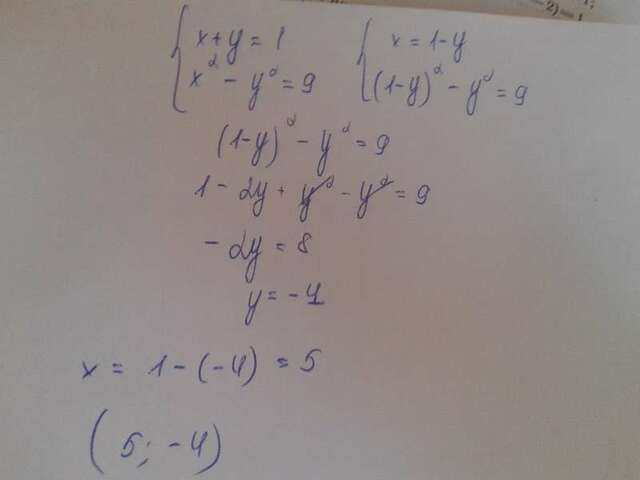 x+y=1 x=1-y
x²-y²=9 (1-y)²-y²=9
(1-y)²-y²=9
1-2y+y²-y²=9
-2y=8
y=-4
x=1-(-4)=5
(5;-4)